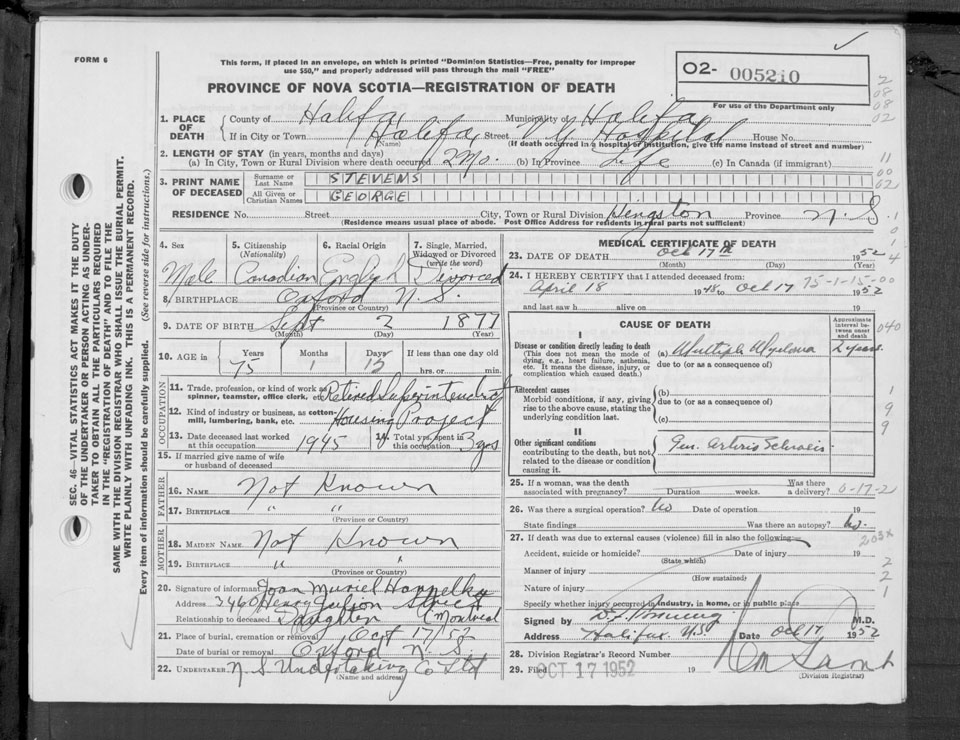 FORM 6
This form, if placed in an envelope, on which is printed "Dominion Statistics—Free, penalty for improper
use $50," and properly addressed will pass through the mail "FREE"
PROVINCE OF NOVA SCOTIA—REGISTRATION OF DEATH
02- 005210
For use of the Department only
1. PLACE OF DEATH
County of Halifax Municipality of Halifax
If in City or Town Halifax Street V.G. Hospital House No.
(Name) (If death occurred in a hospital or institution, give the name instead of street and number)
2. LENGTH OF STAY (in years, months and days)
(a) In City, Town or Rural Division where death occurred 2 Mo. (b) In Province Life (c) In Canada (if immigrant)
3. PRINT NAME OF DECEASED
Surname or Last Name STEVENS
All Given or Christian Names GEORGE
RESIDENCE No. Street City, Town or Rural Division Kingston Province N.S.
(Residence means usual place of abode. Post Office Address for residents in rural parts not sufficient)
4. Sex
Male
5. Citizenship (Nationality)
Canadian
6. Racial Origin
English
7. Single, Married, Widowed or Divorced (write the word)
Divorced
8. BIRTHPLACE Oxford N.S.
(Province or Country)
9. DATE OF BIRTH Sept 2 1877
(Month) (Day) (Year)
10. AGE in Years Months Days If less than one day old
75 15 hrs. or min.
OCCUPATION
11. Trade, profession, or kind of work as spinner, teamster, office clerk, etc. Retired Superintendent
12. Kind of industry or business, as cotton-mill, lumbering, bank, etc. Housing Project
13. Date deceased last worked at this occupation 1945 14. Total yrs. spent in this occupation 3 yrs
15. If married give name of wife or husband of deceased
FATHER
16. NAME Not Known
17. BIRTHPLACE " "
(Province or Country)
MOTHER
18. MAIDEN NAME Not Known
19. BIRTHPLACE " "
(Province or Country)
20. Signature of informant Joan Muriel
Address 3460 Henry Julien Street
Relationship to deceased Daughter (Montreal
21. Place of burial, cremation or removal Oct 17/52
Date of burial or removal Oxford N.S.
22. UNDERTAKER N.S. Undertaking Co Ltd
(Name and address)
MEDICAL CERTIFICATE OF DEATH
23. DATE OF DEATH Oct 17th 1952
(Month) (Day) (Year)
24. I HEREBY CERTIFY that I attended deceased from: 75-1-15-00
April 18 1948 to Oct 17 1952
and last saw h alive on 19
CAUSE OF DEATH
Approximate interval between onset and death
I
Disease or condition directly leading to death (a) Multiple Myeloma 2 years
(This does not mean the mode of dying, e.g., heart failure, asthenia, etc. It means the disease, injury, or complication which caused death.)
due to (or as a consequence of)
Antecedent causes (b)
Morbid conditions, if any, giving rise to the above cause, stating the underlying condition last.
due to (or as a consequence of)
(c)
II
Other significant conditions contributing to the death, but not related to the disease or condition causing it.
Gen. Arterio Sclerosis
25. If a woman, was the death associated with pregnancy? Duration weeks. Was there a delivery? 0-17-2
26. Was there a surgical operation? No Date of operation 19
State findings Was there an autopsy? No
27. If death was due to external causes (violence) fill in also the following:
Accident, suicide or homicide? Date of injury 19
(State which)
Manner of injury
(How sustained)
Nature of injury
Specify whether injury occurred in industry, in home, or in public place
Signed by M.D.
Address Halifax N.S. Date Oct 17 1952
28. Division Registrar's Record Number
29. Filed OCT 17 1952 19
(Division Registrar)
SEC. 46—VITAL STATISTICS ACT MAKES IT THE DUTY
OF THE UNDERTAKER OR PERSON ACTING AS UNDER-
TAKER TO OBTAIN ALL THE PARTICULARS REQUIRED
IN THE "REGISTRATION OF DEATH" AND TO FILE THE
SAME WITH THE DIVISION REGISTRAR WHO SHALL ISSUE THE BURIAL PERMIT.
WRITE PLAINLY WITH UNFADING INK. THIS IS A PERMANENT RECORD.
Every item of information should be carefully supplied. (See reverse side for instructions.)
2
08
08
02
11
00
02
1
0
1
4
040
1
9
9
2
2
1